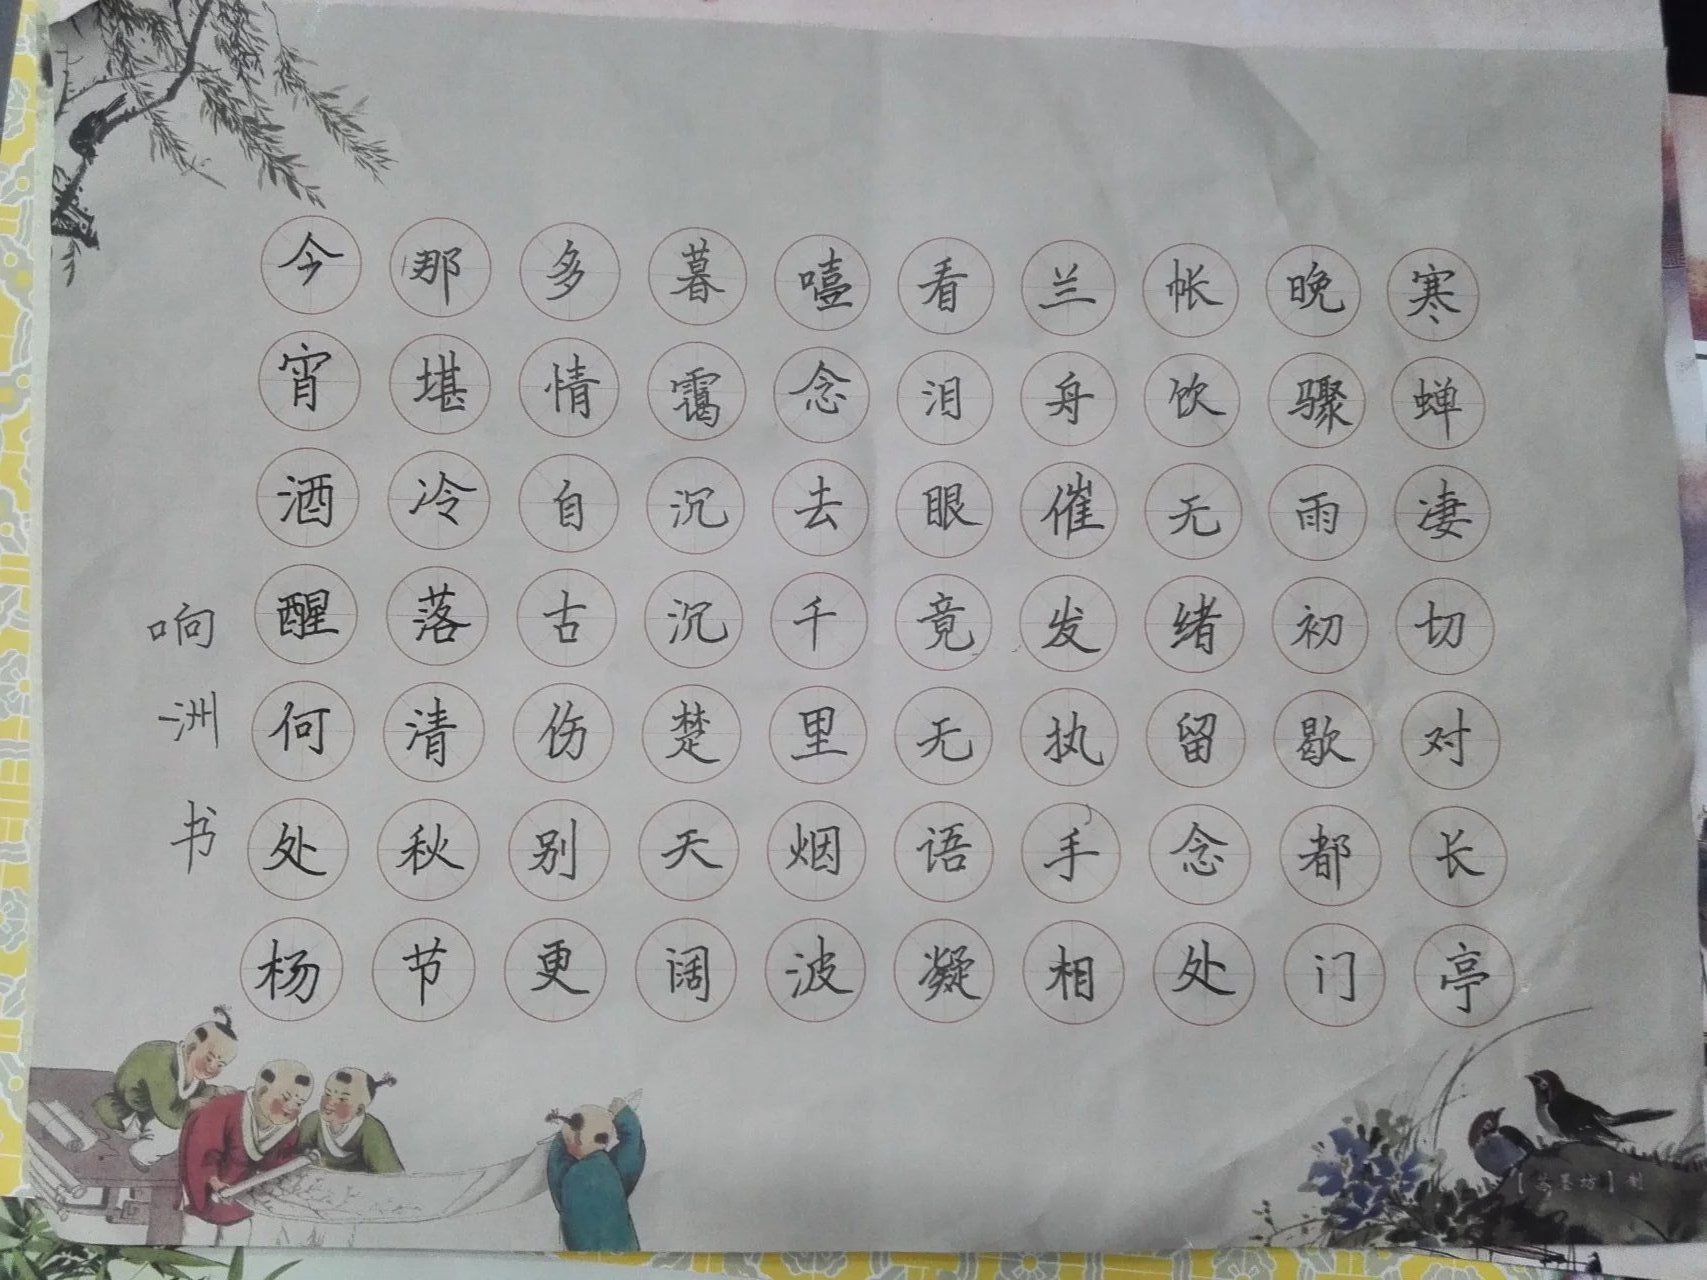 寒蝉凄切对长亭
晚骤雨初歇都门
帐饮无绪留念处
兰舟催发执手相
看泪眼竟无语凝
噎念去千里烟波
暮霭沉沉楚天阔
多情自古伤别更
那堪冷落清秋节
今宵酒醒何处杨
响洲书